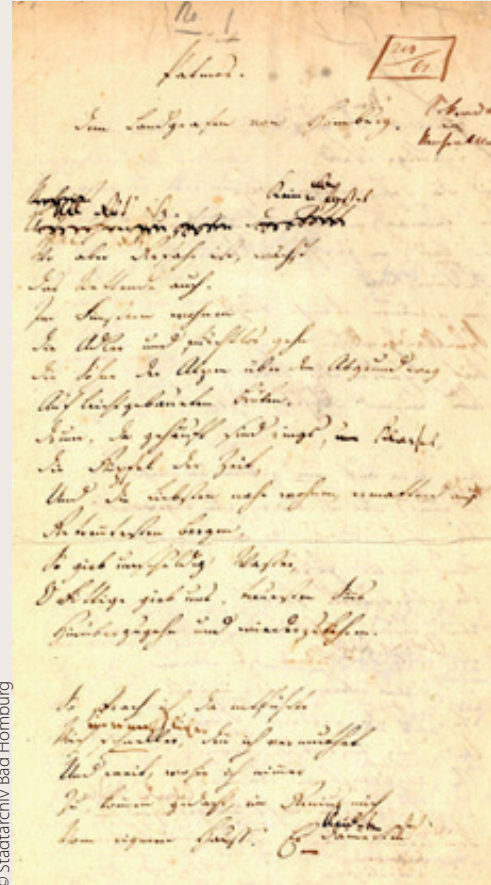 Patmos.
Dem Landgrafen von Homburg.
Voll Güt' ist. Keiner aber fasset
Wo aber Gefahr ist, wächst
Das Rettende auch.
Im Finstern wohnen
Die Adler und furchtlos gehn
Die Söhne der Alpen über den Abgrund weg
Auf leichtgebaueten Brüken.
Drum, da gehäuft sind rings, um Klarheit,
Die Gipfel der Zeit,
Und die Liebsten nahe wohnen, ermattend auf
Getrenntesten Bergen,
So gieb unschuldig Wasser,
O Fittige gieb uns, treuesten Sinns
Hinüberzugehn und wiederzukehren.
So sprach ich, da entführte
Mich schneller, denn ich vermuthet
Und weit, wohin ich nimmer
Zu kommen gedacht, ein Genius mich
Vom eigenen Hauß'. Es dämmerten
© Stadtarchiv Bad Homburg